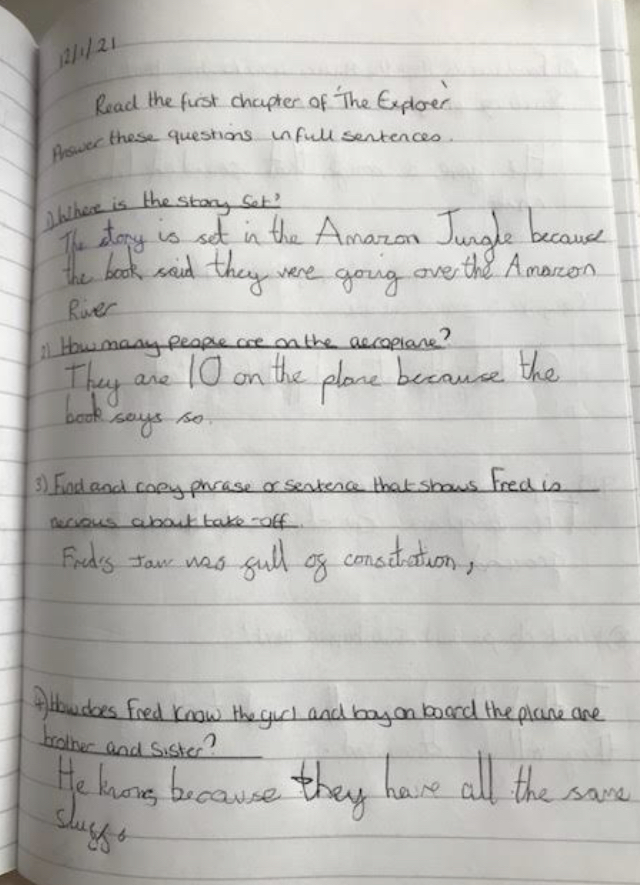 12/1/21
Read the first chapter of 'The Explorer'
Answer these questions in full sentences.
1) Where is the story set?
The story is set in the Amazon Jungle because
the book said they were going over the Amazon
River
2) How many people are on the aeroplane?
They are 10 on the plane because the
book says so.
3) Find and copy phrase or sentence that shows Fred is
nervous about take-off.
Fred's Jaw was full of consitration,
4) How does Fred know the girl and boy on board the plane are
brother and sister?
He knows because they have all the same